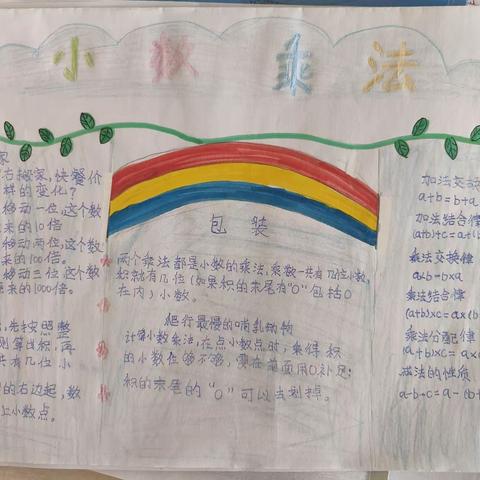 小数乘法
家
右搬家,快餐价
样的变化?
移动一位,这个数
来的10倍
移动两位,这个数
来的100倍。
移动三位,这个数
来的1000倍。
先按照整
则算出积,再
共有几位小
的右边起,数
上小数点。
包装
两个乘法都是小数的乘法,乘数一共有几位小数,
积就有几位(如果积的末尾有“0”包括0
在内)小数。
爬行最慢的哺乳动物
计算小数乘法,在点小数点时,乘得积
的小数位数不够,要在前面用0补足;
积的末尾的“0”可以去划掉。
加法交换
a+b=b+a
加法结合律
(a+b)+c=a+(b+
乘法交换律
a×b=b×a
乘法结合律
(a×b)×c=a×(b
乘法分配律
(a+b)×c=a×c
减法的性质
a-b-c=a-(b+